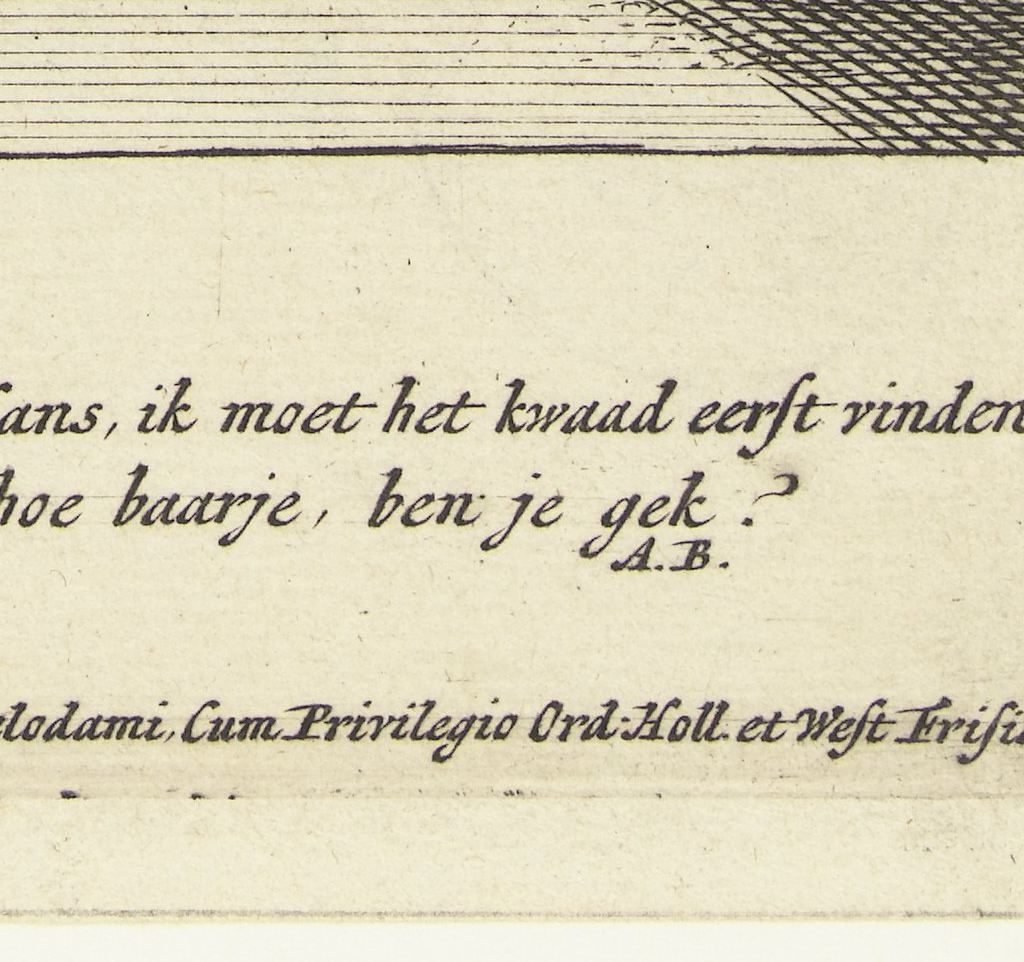 ans, ik moet het kwaad eerſt vinden
hoe baarje, ben je gek ?
A. B.
lodami, Cum Privilegio Ord: Holl. et Weſt Friſi